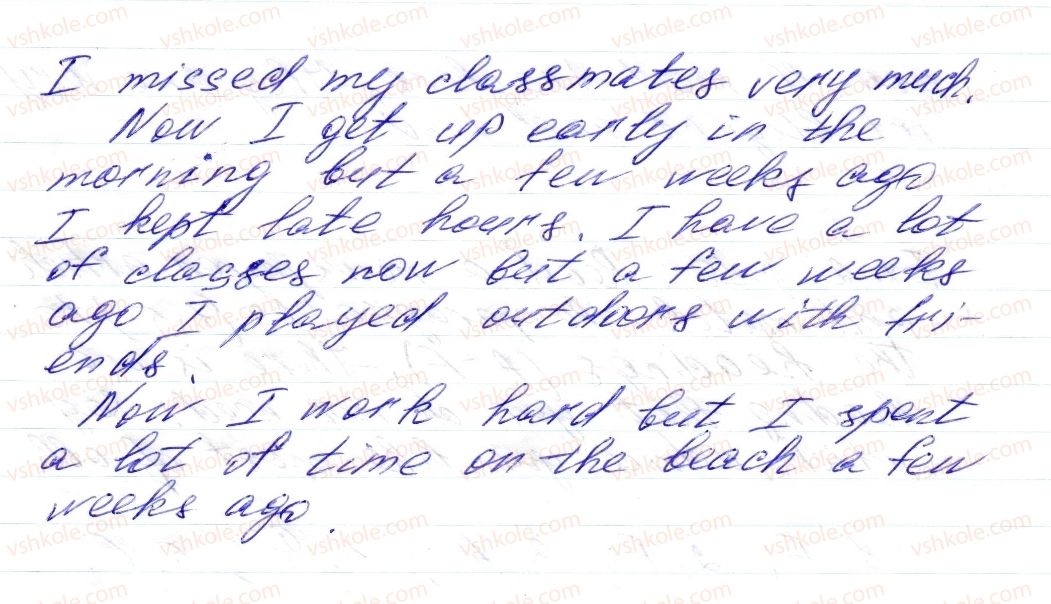 I missed my classmates very much.
Now I get up early in the
morning but a few weeks ago
I kept late hours. I have a lot
of classes now but a few weeks
ago I played outdoors with fri-
ends.
Now I work hard but I spent
a lot of time on the beach a few
weeks ago.